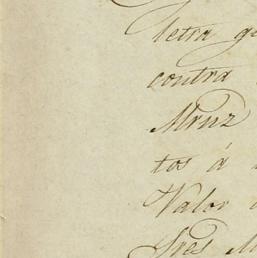 letra
contra
Mruz
tos á
Valor
Tres